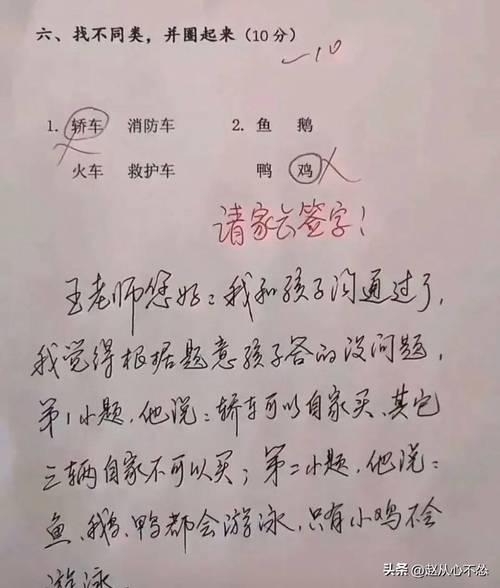 六、找不同类，并圈起来（10分）
-10
1. 轿车 消防车 2. 鱼 鹅
火车 救护车 鸭 鸡
请家长签字！
王老师您好：我和孩子沟通过了，
我觉得根据题意孩子答的没问题，
第1小题，他说：轿车可以自家买，其它
三辆自家不可以买；第二小题，他说：
鱼、鹅、鸭都会游泳，只有小鸡不会
游泳
头条 @赵从心不怂